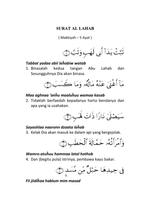 SURAT AL LAHAB
( Makkiyah – 5 Ayat )
تَبَّتْ يَدَآ أَبِى لَهَبٍ وَتَبَّ ﴿١﴾
Tabbat yadaa abii lahabiw watab
1. Binasalah kedua tangan Abu Lahab dan Sesungguhnya Dia akan binasa.
مَآ أَغْنَىٰ عَنْهُ مَالُهُۥ وَمَا كَسَبَ ﴿٢﴾
Maa aghnaa 'anhu maaluhuu wamaa kasab
2. Tidaklah berfaedah kepadanya harta bendanya dan apa yang ia usahakan.
سَيَصْلَىٰ نَارًا ذَاتَ لَهَبٍ ﴿٣﴾
Sayashlaa naaran dzaata lahab
3. Kelak Dia akan masuk ke dalam api yang bergejolak.
وَٱمْرَأَتُهُۥ حَمَّالَةَ ٱلْحَطَبِ ﴿٤﴾
Wamra-atuhuu hammaa latal hathab
4. Dan (begitu pula) istrinya, pembawa kayu bakar.
فِى جِيدِهَا حَبْلٌ مِّن مَّسَدٍۭ ﴿٥﴾
Fii jiidihaa hablum mim masad